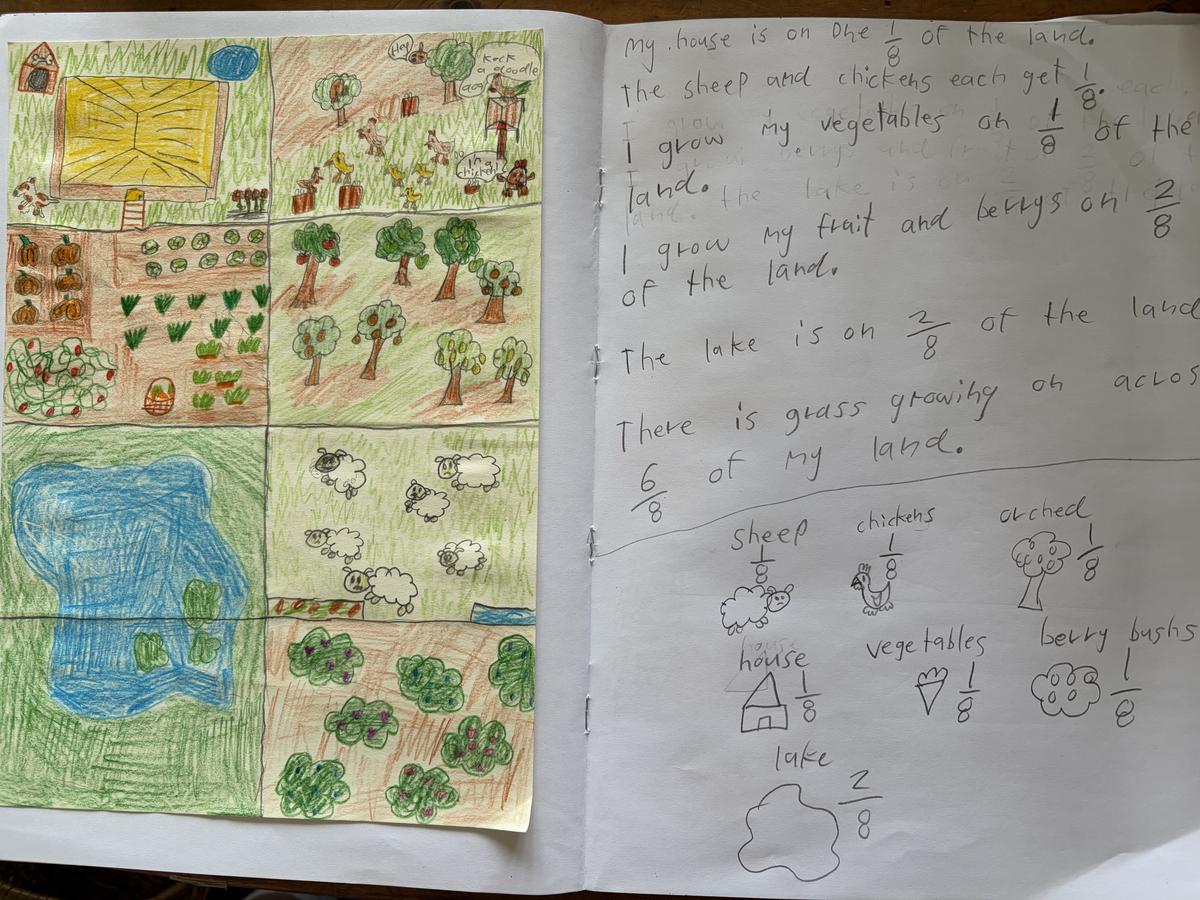 Hey
kock
a doodle
doo
im a
chicken!
My house is on one 1/8 of the land.
The sheep and chickens each get 1/8.
I grow my vegetables on 1/8 of the
land.
I grow my fruit and berrys on 2/8
of the land.
The lake is on 2/8 of the land
There is grass growing on acros
6/8 of my land.
sheep 1/8
chickens 1/8
orched 1/8
house 1/8
vegetables 1/8
berry bushs 1/8
lake 2/8